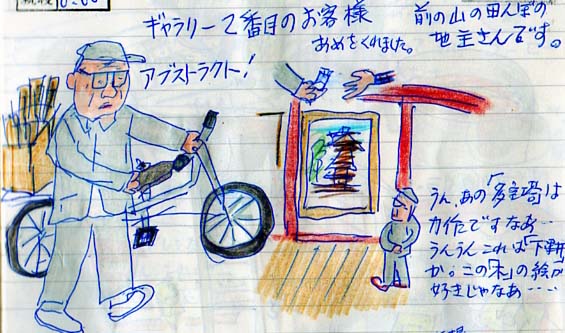 ギャラリー2番目のお客様
あめをくれました。
前の山の田んぼの
地主さんです。
アブストラクト!
うん、あの「多宝塔」は
力作ですなあ…
うんうんこれは「下野」
か。この「木」の絵が
好きじゃなあ……